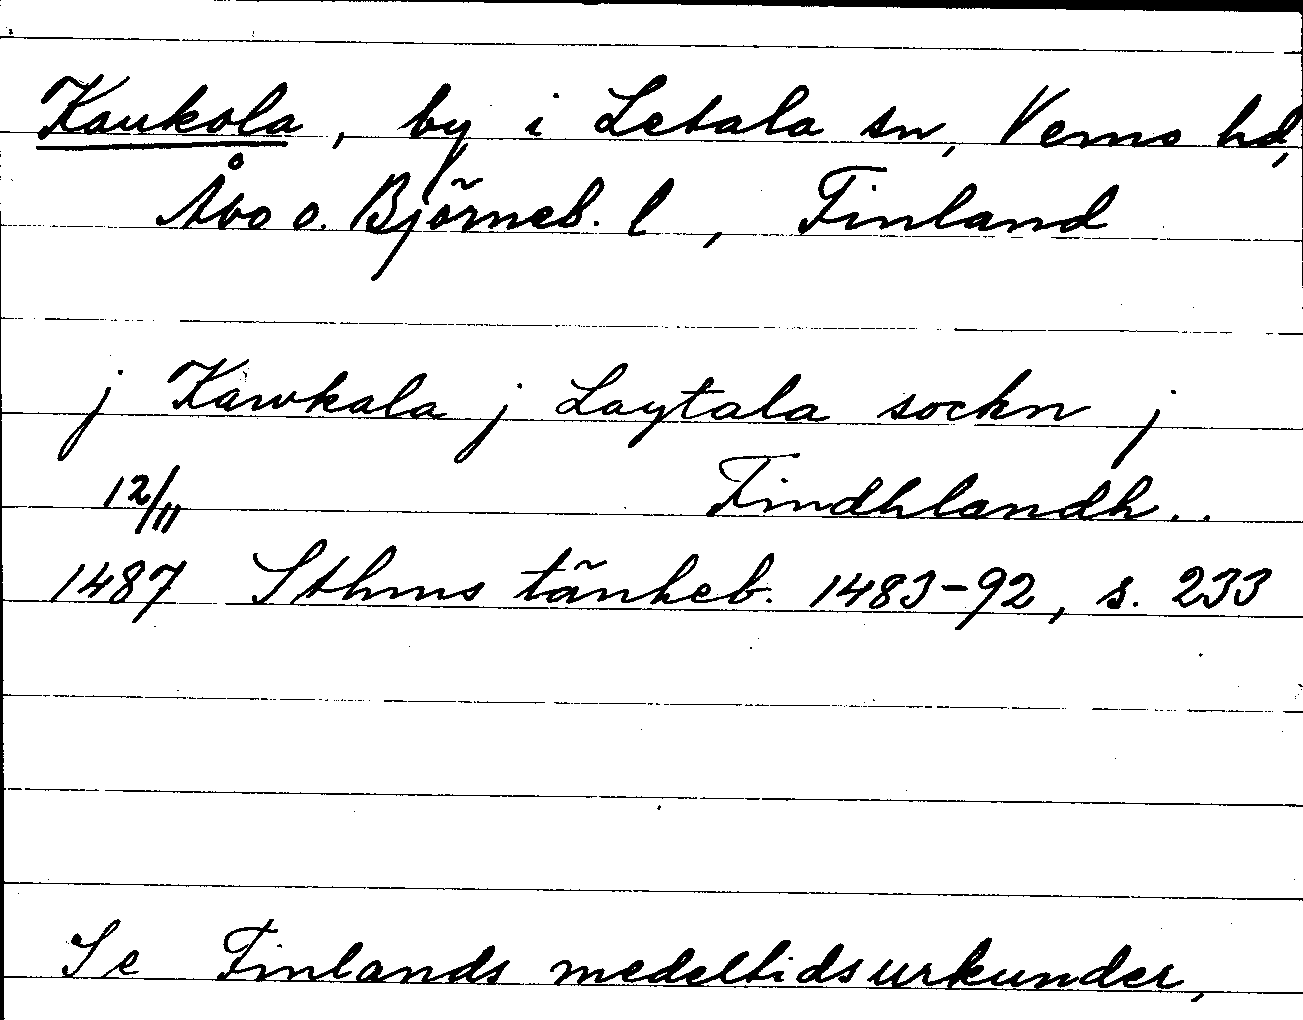 Kaukola, by i Letala sn, Vemo hd,
Åbo o. Björneb. l, Finland
j Kawkala j Laytala sockn j
12/11 Findhlandh..
1487 Sthms tänkeb. 1483-92, s. 233
Se Finlands medeltidsurkunder,